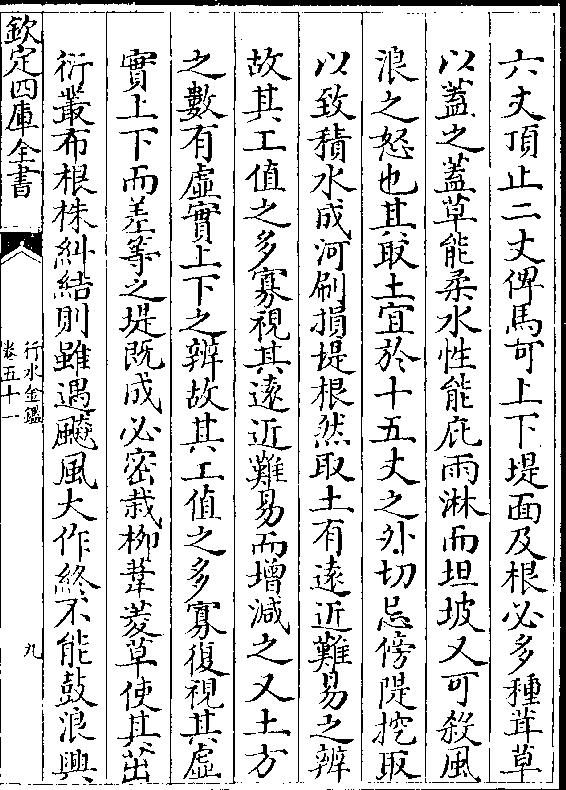 六丈頂止二丈俾馬可上下堤面及根必多種茸草
以蓋之蓋草能柔水性能庇雨淋而坦坡又可殺風
浪之怒也其取土宜於十五丈之外切忌傍隄挖取
以致積水成河刷損堤根然取土有遠近難易之辨
故其工值之多寡視其遠近難易而增減之又土方
之數有虛實上下之辨故其工值之多寡復視其虛
實上下而差等之堤既成必密栽柳葦茭草使其茁
衍叢布根株糾結則雖遇飈風大作終不能鼓浪興
欽定四庫全書
行水金鑑
卷五十一
九